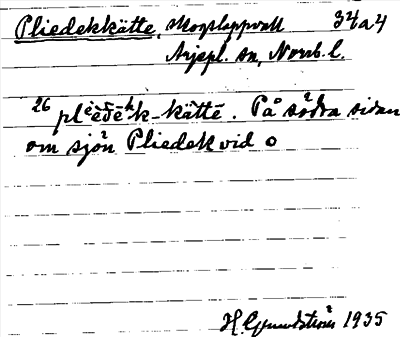 Pliedekkätte, skogslappvall 34a4
Arjepl. sn, Norrb. l.
26 plieδēkk-kättē. På södra sidan
om sjön Pliedek vid o
H. Grundström 1935